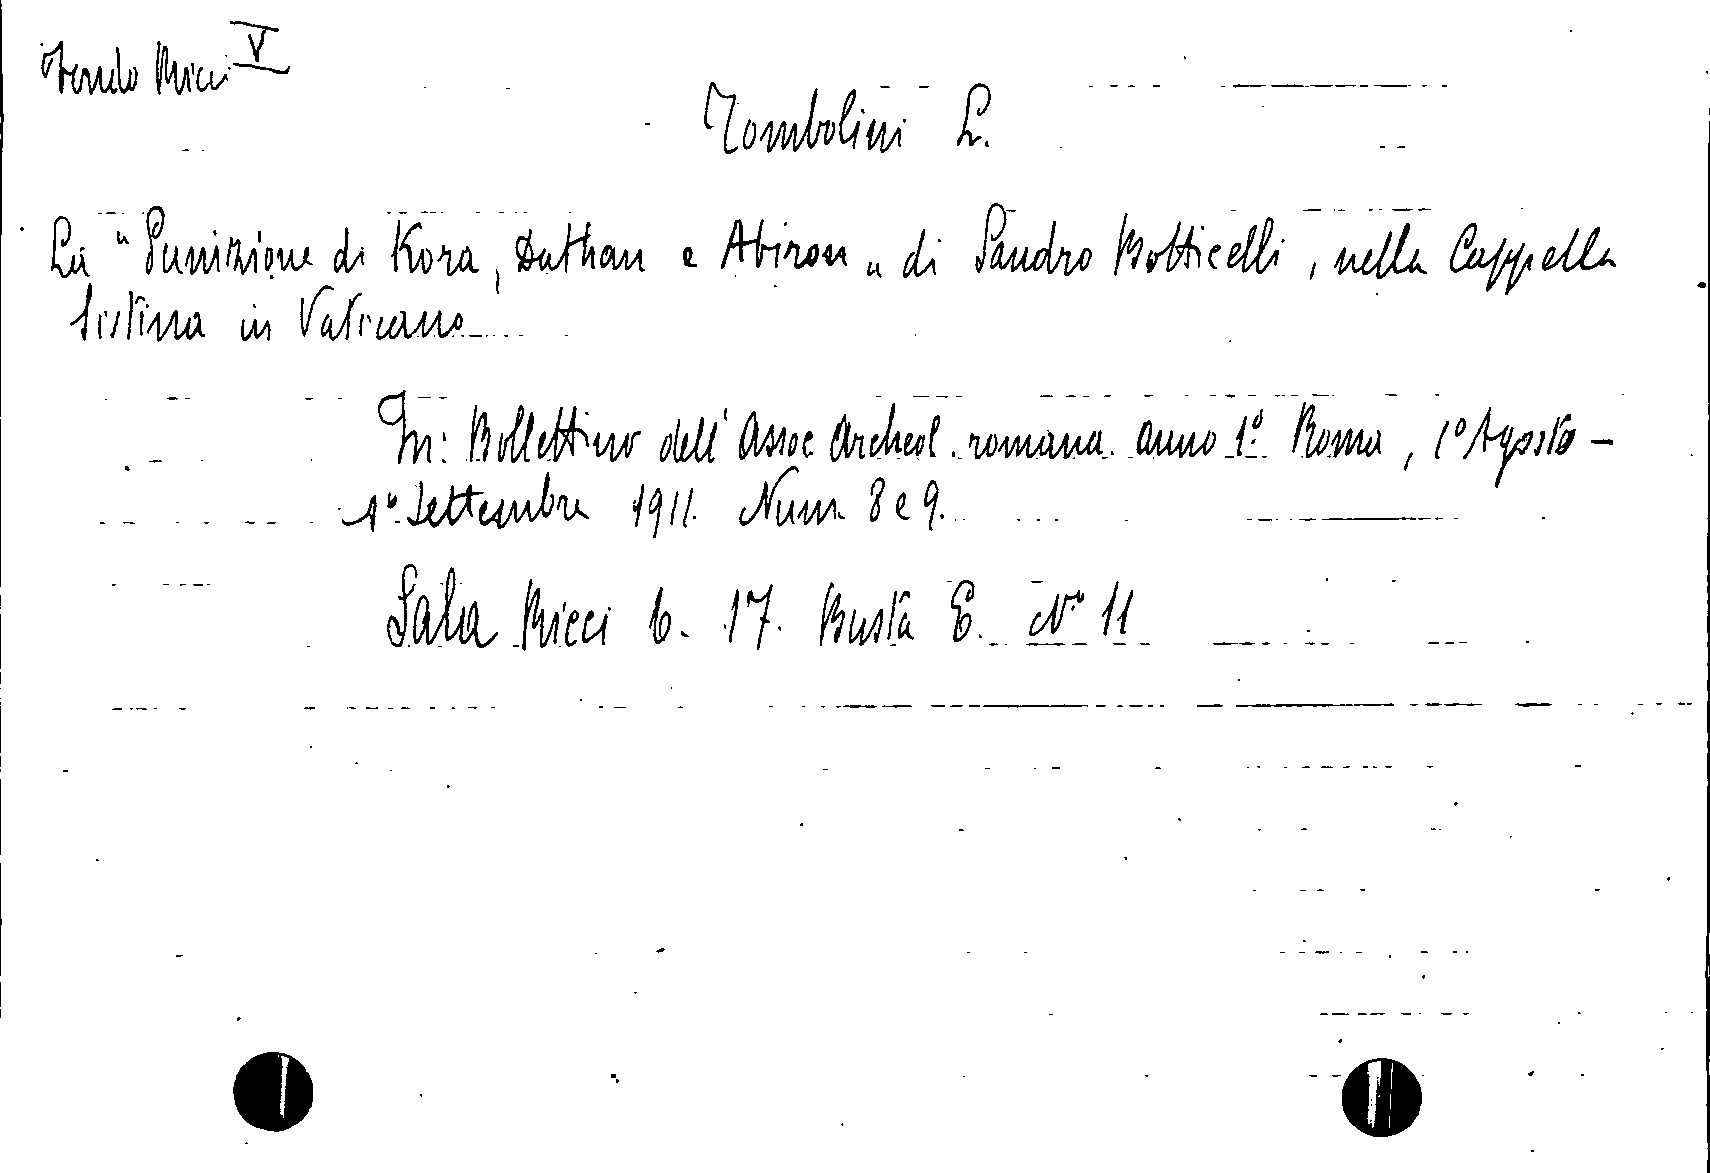 Fondo Ricci V
Tombolini L.
La "Punizione di Kora, Dathan e Abiron" di Sandro Botticelli, nella Cappella
Sistina in Vaticano
In: Bollettino dell'Assoc Archeol. romana. anno 1º. Roma, 1º Agosto –
1º. Settembre 1911. Num. 8 e 9.
Sala Ricci 6. 17. Busta E. Nº 11